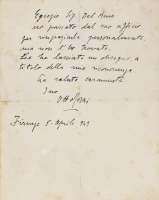 Egregio Sig. Del Bono
son passato dal suo ufficio
per ringraziarla personalmente,
ma non l'ho trovata,
Le ho lasciato un disegno, a
titolo della mia riconoscenza
La saluto caramente
Suo
Firenze 5 Aprile